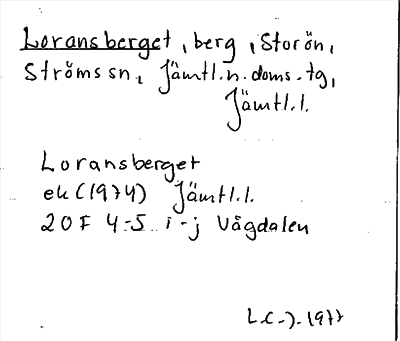 Loransberget, berg, Storön,
Ströms sn, Jämtl.n.doms.tg,
Jämtl.l.
Loransberget
ek (1974) Jämtl.l.
20F 4-5 i-j Vågdalen
L.C-J-1977